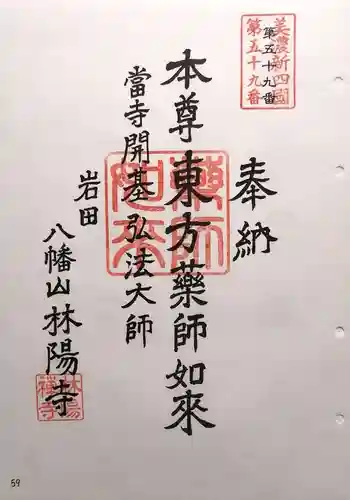 美濃新四國
第五十九番
第五十九番
奉納
本尊東方藥師如來
當寺開基弘法大師
岩田
八幡山林陽寺
藥師
如来
林陽
禅寺
59